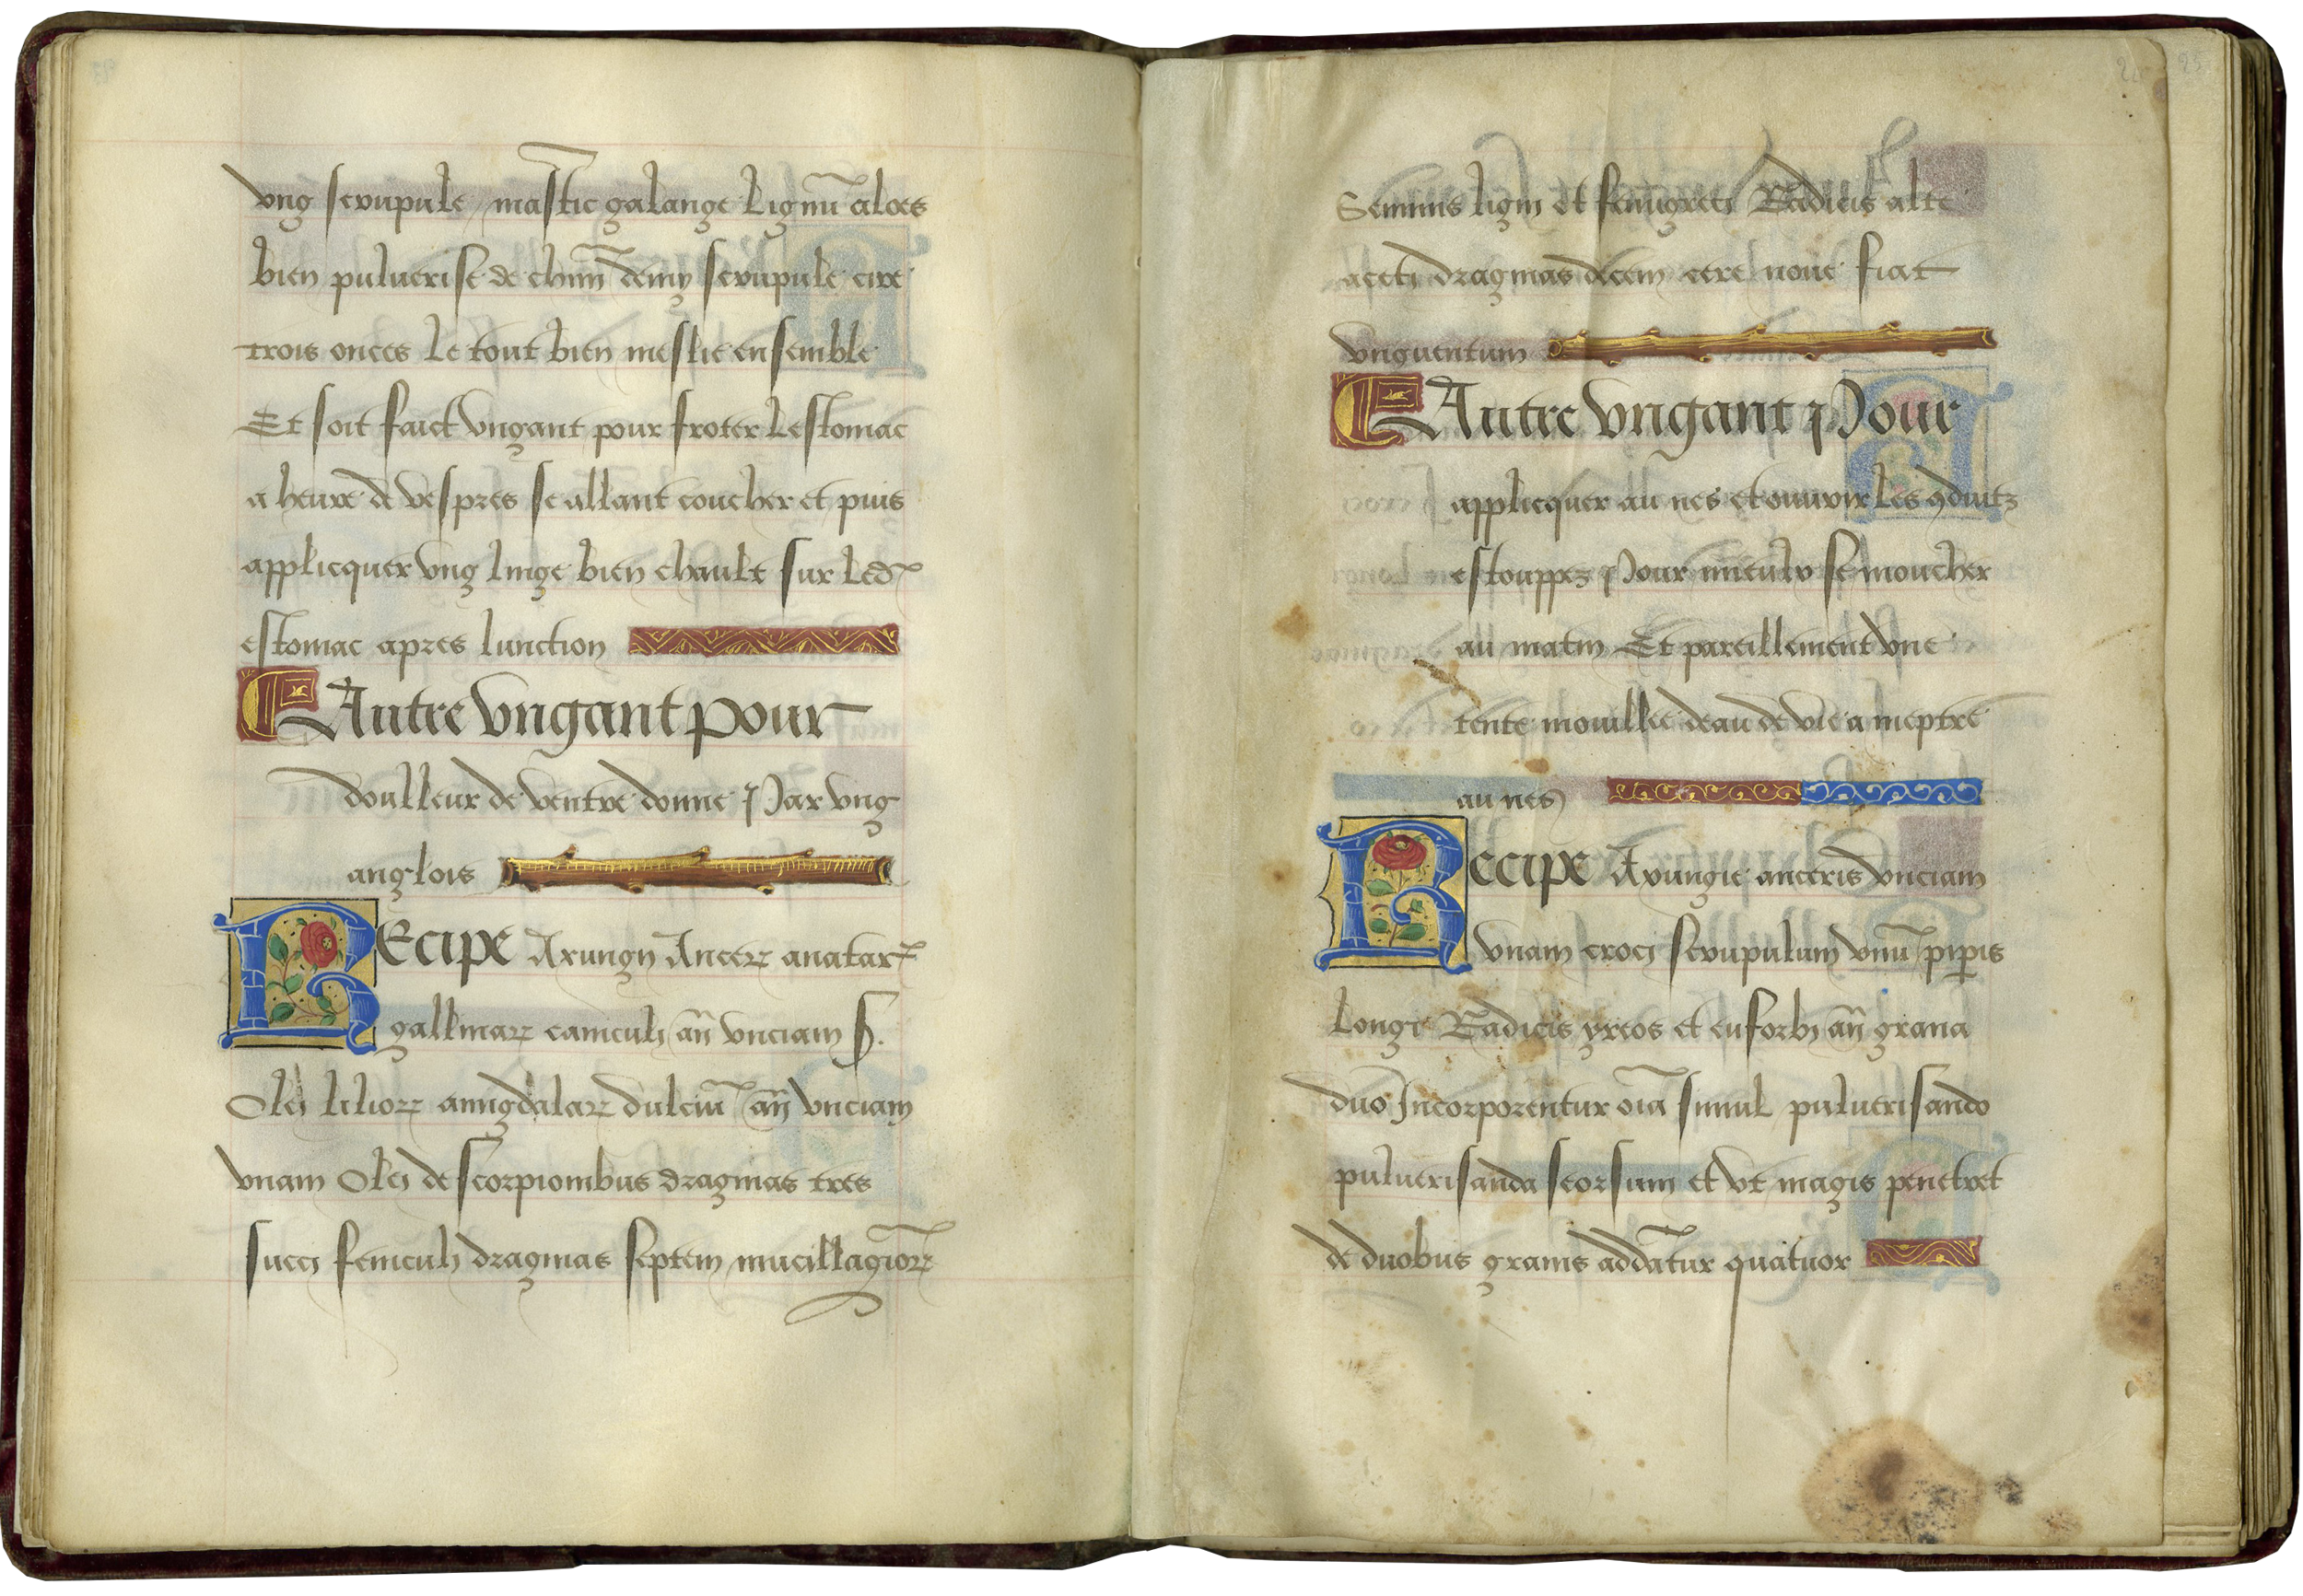 vng scrupule mastic galange Lignū aloes
bien puluerise de chūn demy scrupule cire
trois onces Le tout bien meslie ensemble
Et soit faict vngant pour froter Lestomac
a heure de vespres se allant coucher et puis
applicquer vng linge bien chault sur Led
estomac apres lunction
Autre vngant pour
doulleur de ventre donne Par vng
anglois
Recipe Axungij Ancerꝝ anatarꝝ
gallinarꝝ caniculj añ vnciam s.
Olej liliorꝝ amigdalarꝝ dulciū añ vnciam
vnam Olej de scorpionibus dragmas tres
succj feniculj dragmas septem mucillagiorꝝ
Seminis ligni et fenugrecj Radicis alte
acetj dragmas decem cere noue fiat
vnguentum
Autre vngant Pour
applicquer au nes et ouurir les ꝯduitz
estouppez Pour mieulx se moucher
au matin Et pareillement vne
tente mouillee deau de vie a meptre
au nes
Recipe Axungie anceris vnciam
vnam crocj scrupulum vnū piꝑis
Longi Radicis yreos et euforbij añ grana
duo Incorporentur oīa simul puluerisando
puluerisanda seorsum et vt magis penetret
de duobus granis addātur quatuor